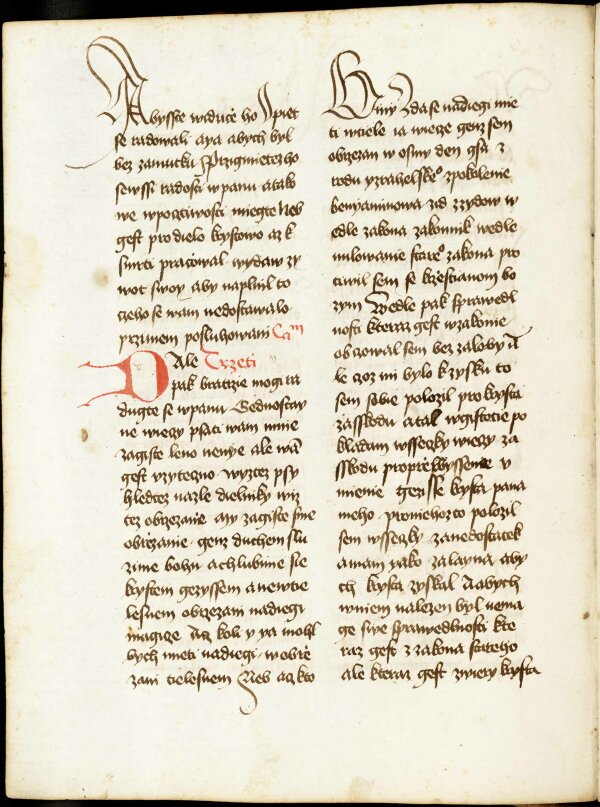 Abysste widuce ho Opiet
se radowali aya abych byl
bez zamutku Przigmetez ho
sewssi radosti w panu a tako
we wpocztiwosti miegte Neb
gest pro dielo krystowo az k
smrti pracowal wydaw zy
wot swoy aby naplnil to
czeho se wam nedostawalo
przimem posluhowani Cam
DAle Trzeti
pak bratrzie mogi ra
dugte se w panu Gednostay
ne wieczy psati wam mnie
zagiste leno nenye ale wam
gest vzyteczno wyzte psy
hledtez na zle dielniky wiz
tez obrzezanie my zagiste sme
obrzezanie genz duchem slu
zime bohu a chlubime sie
krystem gezyssem a newtie
lesnem obrzezani nadiegi
magicze Acz koli y ya mohl
bych mieti nadiegi w obrze
zani tielesnem Neb acz kto
Giny Zda se nadiegi mie
ti w tiele ia wiecze genz sem
obrzezan w osmy den gsa z
rodu yzrahelske⁰ z pokolenie
benyaminowa zid z zydow w
edle zakona zakonnik wedle
milowanie stare⁰ zakona pro
tiwil sem se krzestianom bo
zym Wedle pak sprawedl
nosti kteraz gest w zakonie
obcowal sem bez zaloby A
le czoz mi bylo k zysku to
sem sobie polozil pro krysta
za sskodu a tak w gistotie po
kladam wsseczky wieczy za
sskodu pro prziewyssene v
mienie gezisse krysta pana
meho pro niehozto polozil
sem wsseczky za nedostatek
a mam yako za layna aby
ch krysta zyskal A abych
w niem nalezen byl nema
ge swe sprawedlnosti kte
raz gest z zakona stareho
ale kteraz gest z wiery krysta